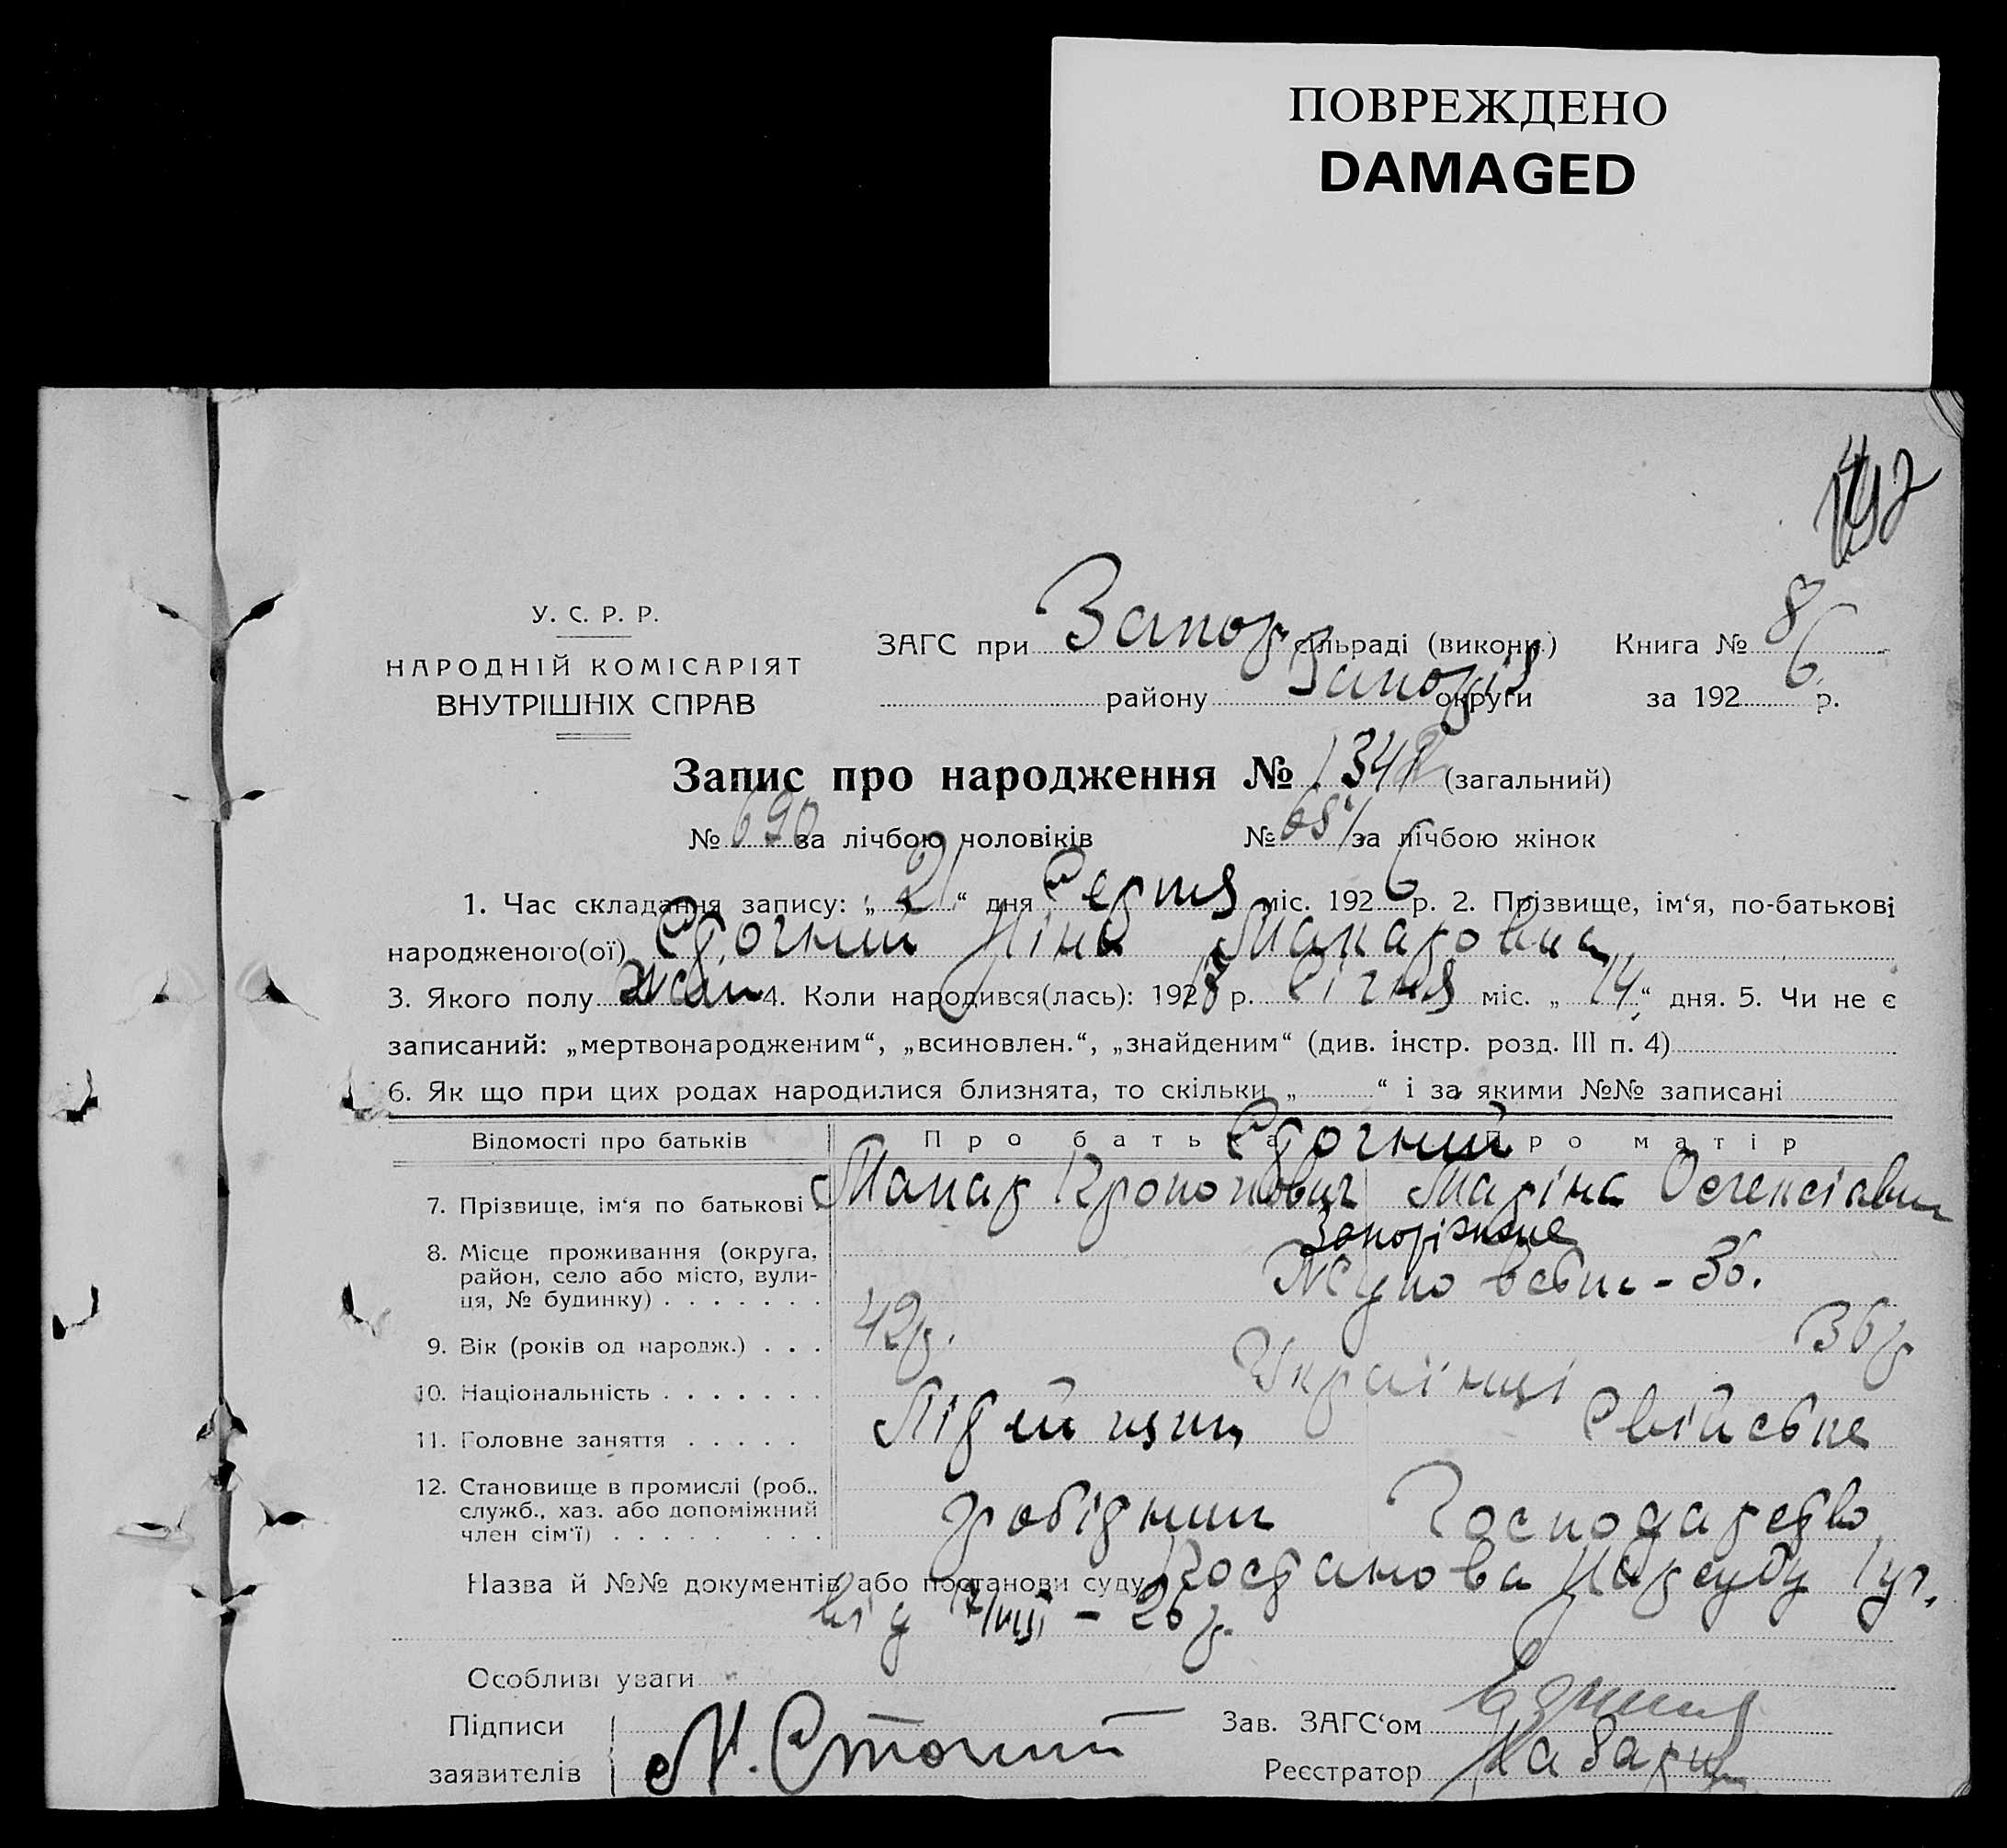 ПОВРЕЖДЕНО
DAMAGED
У. С. Р. Р.
НАРОДНІЙ КОМІСАРІЯТ
ВНУТРІШНІХ СПРАВ
ЗАГС при Запор сільраді (викони.) Книга № 8
району Запоріз округи за 1926 р.
Запис про народження № 134 (загальний)
№ 690 за лічбою чоловіків № 68 за лічбою жінок
1. Час складання запису: „21“ дня Серпня міс. 1926 р. 2. Прізвище, ім‘я, по-батькові
народженого(ої) Стогний Ніна Макаровна
3. Якого полу жін 4. Коли народився(лась): 192 р. Січня міс. „14“ дня. 5. Чи не є
записаний: „мертвонародженим“, „всиновлен.“, „знайденим“ (див. інстр. розд. III п. 4)
6. Як що при цих родах народилися близнята, то скільки „ “ і за якими №№ записані
Відомості про батьків Про батька Про матір
Стогний
7. Прізвище, ім‘я по батькові Макар Марина
8. Місце проживання (округа, район, село або місто, вулиця, № будинку) Запоріжжє
- 36.
9. Вік (років од народж.) 42 р. 36 р
10. Національність Українці
11. Головне заняття Свійське
12. Становище в промислі (роб., служб., хаз. або допоміжний член сім‘ї) робітник Господарство
Назва й №№ документів або постанови суду Постанова Нарсуду
від - 26 р.
Особливі уваги
Підписи заявителів М. Стогний
Зав. ЗАГС‘ом
Реєстратор